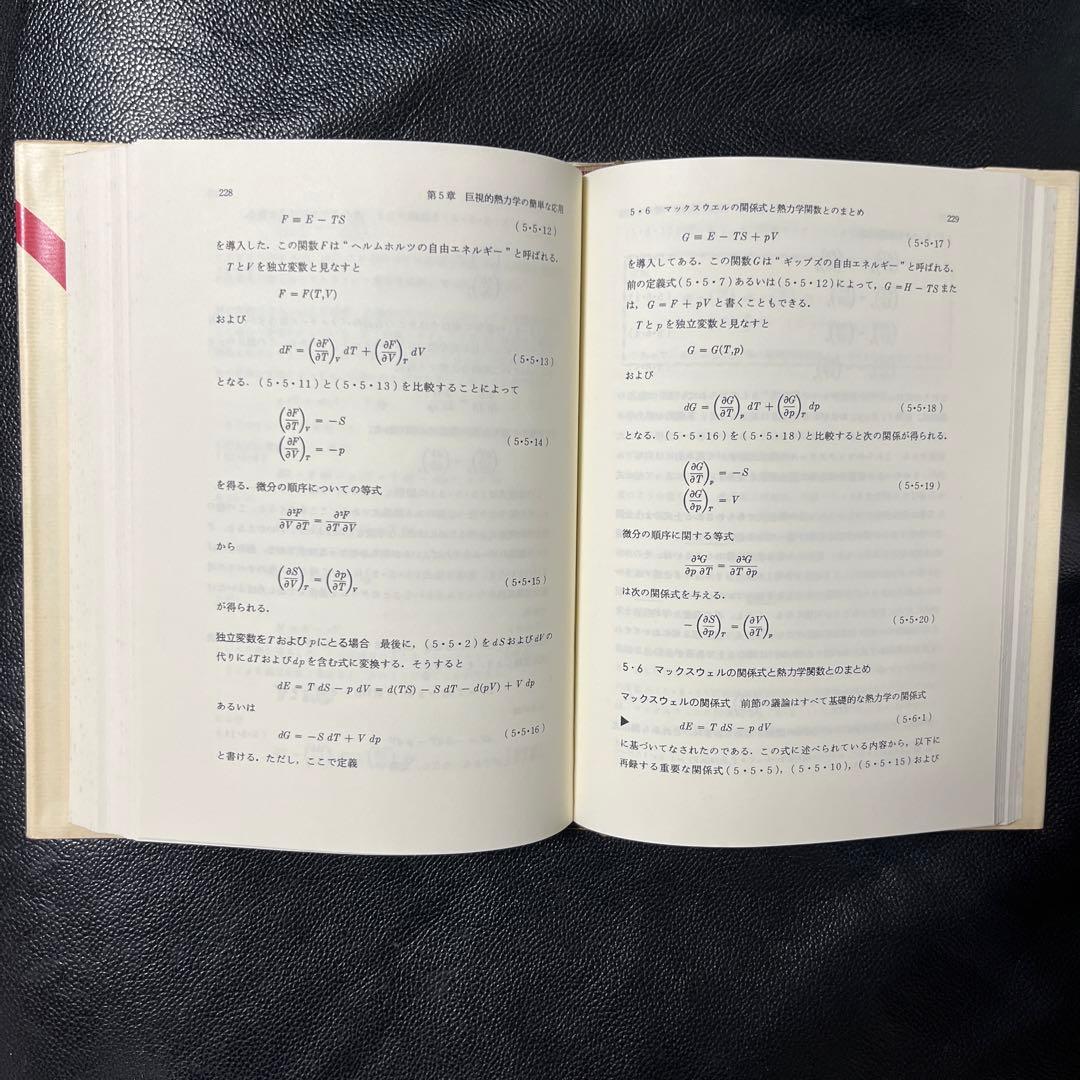 228
第5章 巨視的熱力学の簡単な応用
F ≡ E − TS (5·5·12)
を導入した．この関数Fは“ヘルムホルツの自由エネルギー”と呼ばれる．
TとVを独立変数と見なすと
F = F(T,V)
および
dF = (∂F/∂T)_V dT + (∂F/∂V)_T dV (5·5·13)
となる．(5·5·11)と(5·5·13)を比較することによって
(∂F/∂T)_V = −S
(∂F/∂V)_T = −p (5·5·14)
を得る．微分の順序についての等式
∂²F/∂V ∂T = ∂²F/∂T ∂V
から
(∂S/∂V)_T = (∂p/∂T)_V (5·5·15)
が得られる．
独立変数をTおよびpにとる場合 最後に，(5·5·2)をdSおよびdVの
代りにdTおよびdpを含む式に変換する．そうすると
dE = T dS − p dV = d(TS) − S dT − d(pV) + V dp
あるいは
dG = −S dT + V dp (5·5·16)
と書ける．ただし，ここで定義
5·6 マックスウエルの関係式と熱力学関数とのまとめ
229
G ≡ E − TS + pV (5·5·17)
を導入してある．この関数Gは“ギッブズの自由エネルギー”と呼ばれる．
前の定義式(5·5·7)あるいは(5·5·12)によって，G=H − TSまた
は，G = F + pVと書くこともできる．
Tとpを独立変数と見なすと
G = G(T,p)
および
dG = (∂G/∂T)_p dT + (∂G/∂p)_T dp (5·5·18)
となる．(5·5·16)を(5·5·18)と比較すると次の関係が得られる．
(∂G/∂T)_p = −S
(∂G/∂p)_T = V (5·5·19)
微分の順序に関する等式
∂²G/∂p ∂T = ∂²G/∂T ∂p
は次の関係式を与える．
−(∂S/∂p)_T = (∂V/∂T)_p (5·5·20)
5·6 マックスウェルの関係式と熱力学関数とのまとめ
マックスウェルの関係式 前節の議論はすべて基礎的な熱力学の関係式
▶ dE = T dS − p dV (5·6·1)
に基づいてなされたのである．この式に述べられている内容から，以下に
再録する重要な関係式(5·5·5)，(5·5·10)，(5·5·15)および